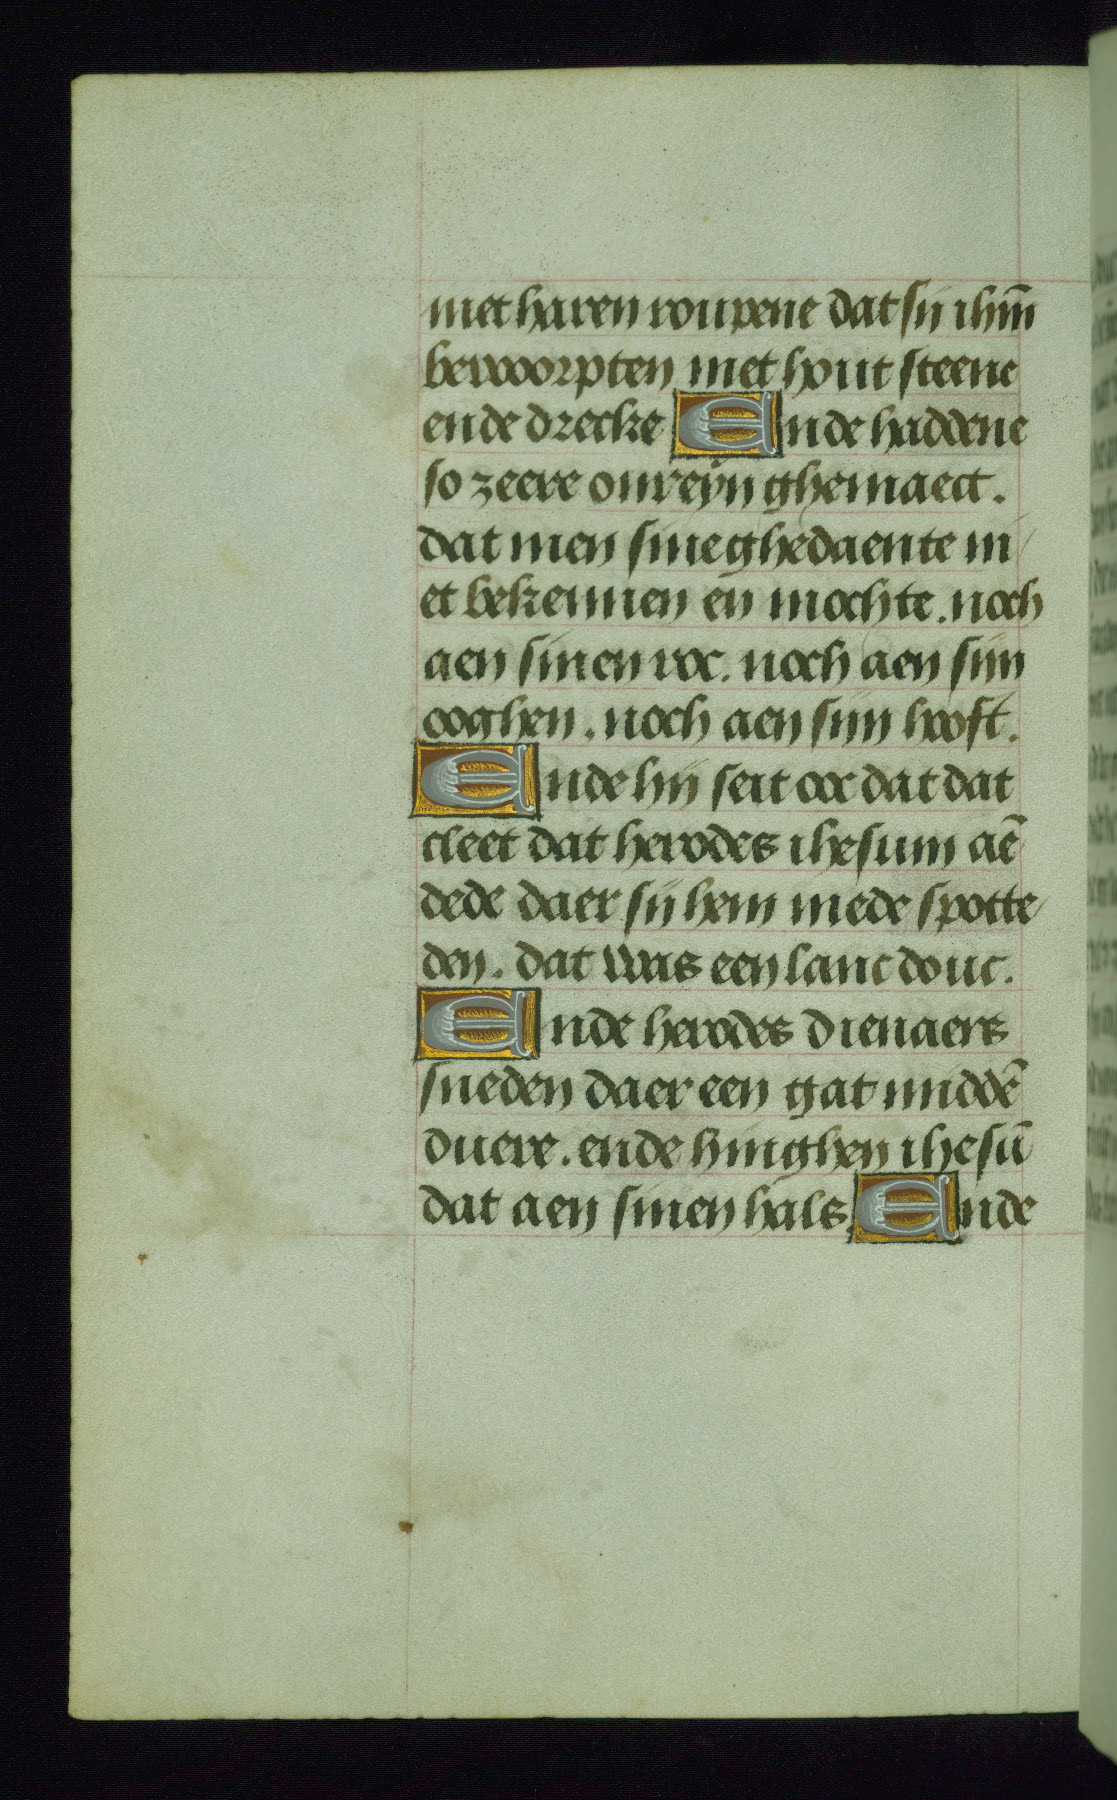 met haren roupene dat sij ihm̄
berwoorpten met hout steene
ende drecke Ende haddene
so zeere onreyn ghemaect.
dat men sine ghedaente ni
et bekennen en mochte. noch
aen sinen roc. noch aen sijn
ooghen. noch aen sijn hooft.
Ende hij seit oor dat dat
cleet dat herodes ihesum aē
dede daer sij hem mede spotte
den. dat was een lanc douc.
Ende herodes dienaers
sneden daer een gat middē
duere. ende hinghen ihesū
dat aen sinen hals. Ende